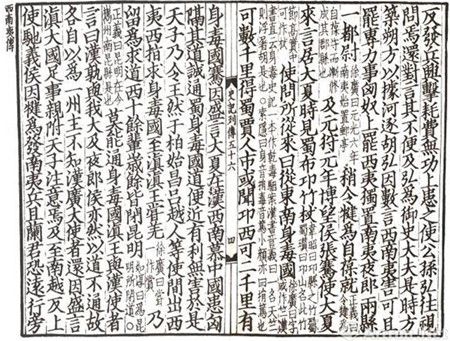 西南夷傳
反發兵興擊耗費無功上患之使公孫弘往視
問焉還對言其不便及弘為御史大夫是時方
築朔方以據河逐胡弘因數言西南夷害可且
罷專力事匈奴上罷西夷獨置南夷夜郎兩縣
一都尉徐廣曰元光六年南夷始置郵亭稍令犍為自葆就
及元狩元年博望侯張騫使大夏
來言居大夏時見蜀布邛竹杖
使問所從來曰從東南身毒國
可數千里得蜀賈人市或聞邛西可二千里有
史記列傳五十六 四
身毒國騫因盛言大夏在漢西南慕中國患匈奴
隔其道誠通蜀身毒國道便近有利無害於是
天子乃令王然于柏始昌呂越人等使間出西
夷西指求身毒國至滇滇王嘗羌徐廣曰嘗一作賞乃
留為求道西十餘輩歲餘皆閉昆明
莫能通身毒國滇王與漢使者
言曰漢孰與我大及夜郎侯亦然以道不通故
各自以為一州主不知漢廣大使者還因盛言
滇大國足事親附天子注意焉及至南越反上
使馳義侯因犍為發南夷兵且蘭君恐遠行旁